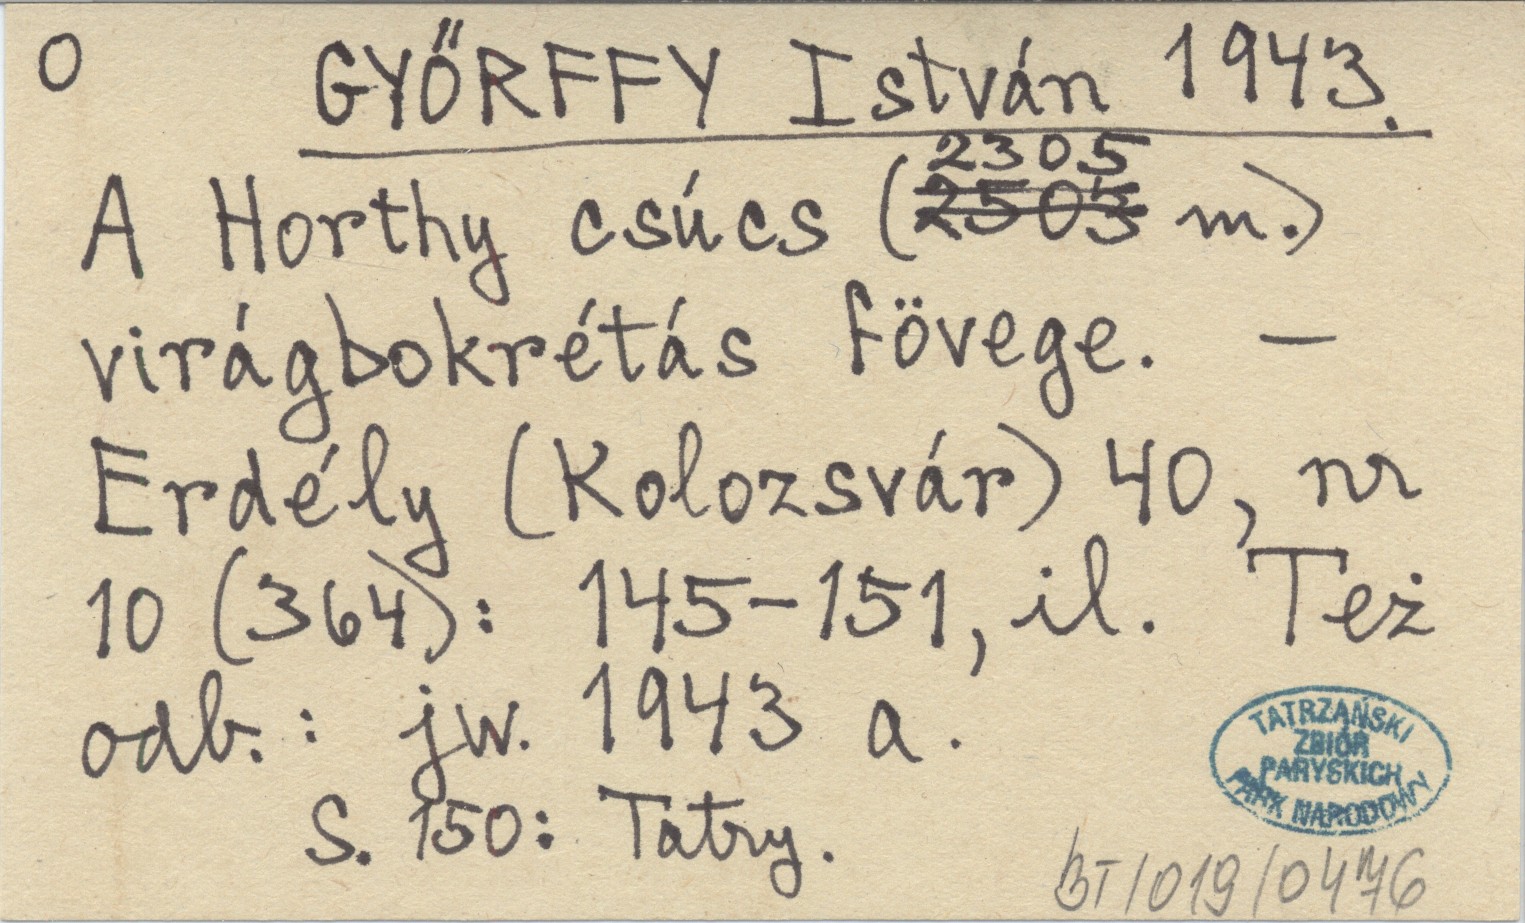 O GYŐRFFY István 1943.
2305
A Horthy csúcs (2503 m.)
virágbokrétás fövege. —
Erdély (Kolozsvár) 40, nr
10 (364): 145-151, il. Też
odb.: jw. 1943 a.
S. 150: Tatry.
TATRZAŃSKI
ZBIÓR
PARYSKICH
PARK NARODOWY
BT/019/0476